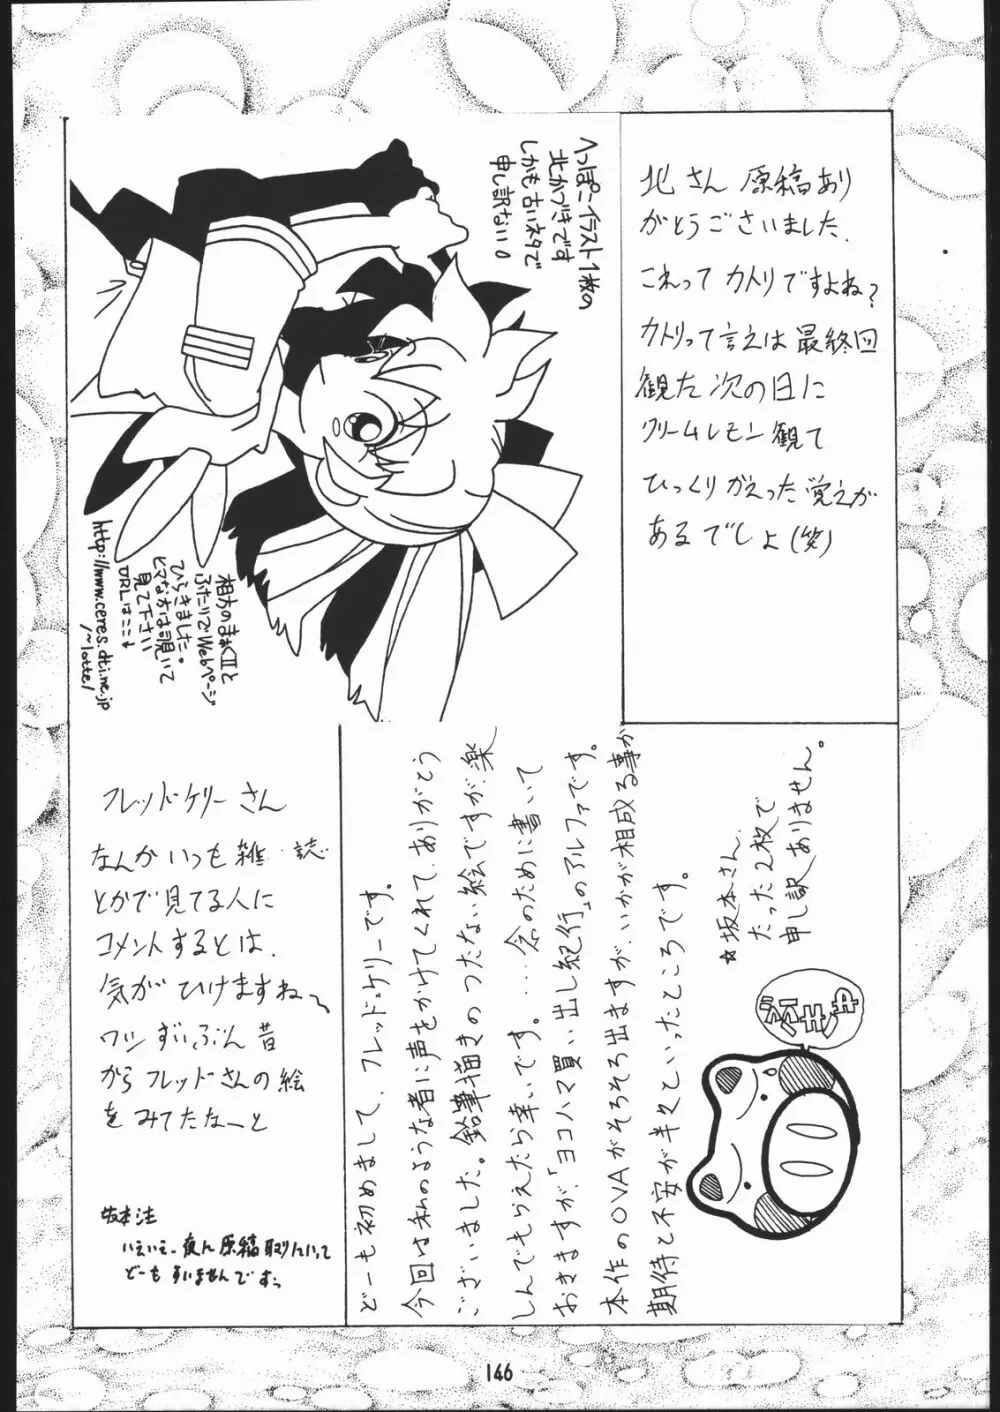 北さん 原稿あり
がとうございました.
これって カトリですよね?
カトリって言えば 最終回
観た次の日に
クリームレモン観て
ひっくりかえった覚えが
あるでしょ(笑)
へっぽこイラスト1枚の
北かづきです
しかも古いネタで
申し訳ない。
ふたりでWebページ
ひらきました。
ヒマな方は覗いて
見て下さい
URLはここ↓
http://www.ceres.dti.ne.jp
/~lotte/
フレッド・ケリーさん
なんか いつも雑誌
とかで見てる人に
コメントするとは、
気が ひけますね〜
ワシ ずいぶん昔
から フレッドさんの絵
を みてたなーと
坂本注
いえいえ、夜に原稿取りにいって
どーも すいませんですっ
どーも初めまして、フレッド・ケリーです。
今回は私のような者に声をかけてくれて、ありがとう
ございました。鉛筆描きのつたない絵ですが、楽
しんでもらえたら幸いです。……念のために書いて
おきますが、「ヨコハマ買い出し紀行」のアルファです。
本作のOVAがそろそろ出ますが、いかが相成る事か
期待と不安が半々といったところです。
☆坂本さん、
たった2枚で
申し訳ありません。
146